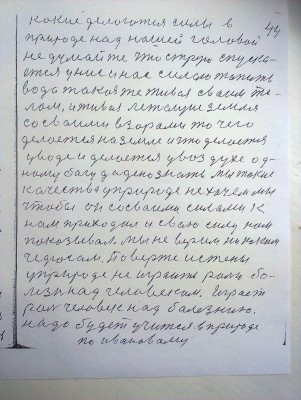 какие делоются силы в 44
природе над нашей головой
не думайте что струю спуска-
ется у нис и нас силою топить
вода такоя те живая сваим те-
лом, и живая летающе земля
со сваими взорами то чего
делоется на земле и что делоется
у воде и делоется у воздухе од-
ному богу да дено знать мы такие
качества у природе не хочем мы
чтобы он со сваими силами к
нам приходил и сваю силу нам
показывал. мы не верим ни каким
чедюсам. Поверте истены
у природе не играит роли бо-
лизнь над человеком. Играет
рол человек над балезнию.
надо будет учится в природе
по ивановаму